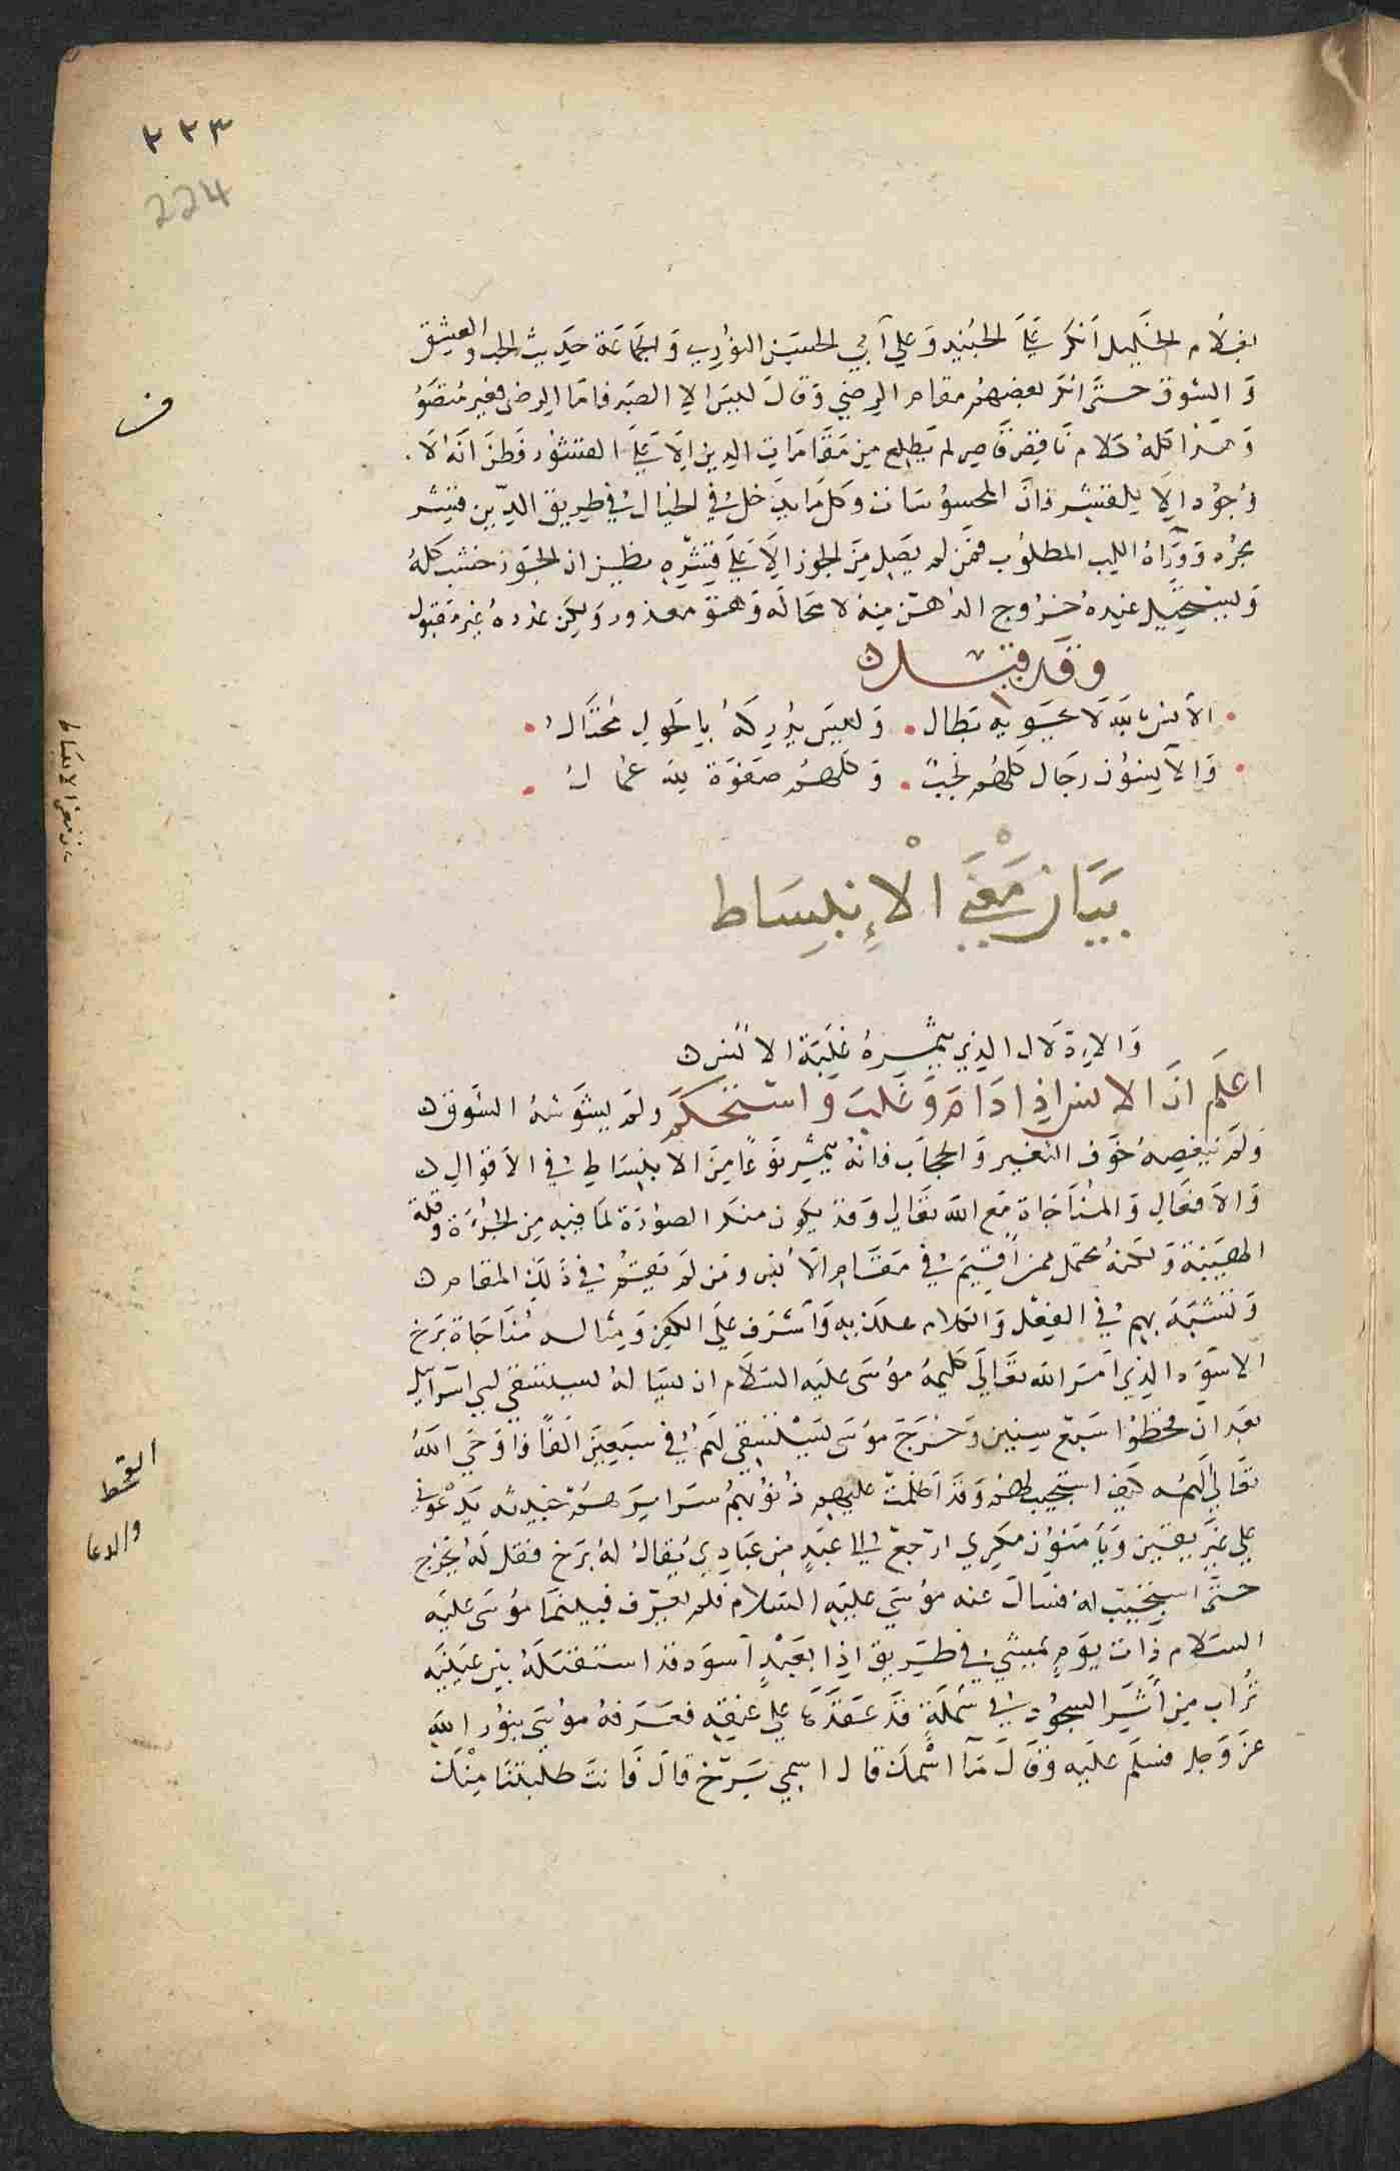 ٢٢٣
224
بغلام الخليل انكر على الجنيد وعلى أبي الحسين النوري والجماعة حديث الحب والعشق
والشوق حتى انكر بعضهم مقام الرضي وقال ليس الا الصبر فاما الرضى فغير متصور
وهذا كله كلام ناقص قاصر لم يطلع من مقامات الدين الا على القشور فظن انه لا
وجود الا للقشر فان المحسوسات وكل ما يدخل في الخيال في طريق الدين قشر
مجرد ووراه اللب المطلوب فمن لم يصل من الجوز الا على قشره يظن ان الجوز خشب كله
ويستحيل عنده خروج الدهن منه لا محاله وهو معذور ولكن عذره غير مقبول
وقد قيل
الانس بالله لا يحويه بطال . وليس يدركه بالحول محتال
والآنسون رجال كلهم نجب . وكلهم صفوة لله عمال
بيان معنى الإنبساط
والادلال الذي يثمره غلبة الانس
اعلم ان الانس اذا دام وغلب واستحكم ولم يشوشه الشوق
ولم ينغصه خوف التغير والحجاب فانه يثمر نوعا من الانبساط في الاقوال
والافعال والمناجاة مع الله تعالى وقد يكون منكر الصورة لما فيه من الجرءة وقلة
الهيبة ولكنه محتمل ممن أقيم في مقام الأنس ومن لم يقم في ذلك المقام
وتشبه بهم في الفعل والكلام هلك به وأشرف على الكفر ومثاله مناجاة برخ
الاسود الذي امر الله تعالى كليمه موسى عليه السلام ان يساله ليستسقي لبني اسرآيل
بعد ان قحطوا سبع سنين وخرج موسى ليستسقي لهم في سبعين الفا فاوحى الله
تعالى اليه كيف استجيب لهم وقد اظلمت عليهم ذنوبهم سرايرهم خبيثه يدعوني
على غير يقين ويأمنون مكري ارجع الى عبد من عبادي يقال له برخ فقل له يخرج
حتى استجيب له فسال عنه موسى عليه السلام فلم يعرف فبينما موسى عليه
السلام ذات يوم يمشي في طريق اذا بعبد أسود قد استقبله بين عينيه
تراب من أثر السجود في شملة قد عقدها على عنقه فعرفه موسى بنور الله
عز وجل فسلم عليه وقال مآ اسمك قال اسمي برخ قال فانت طلبتنا منك
القحط
والدعا